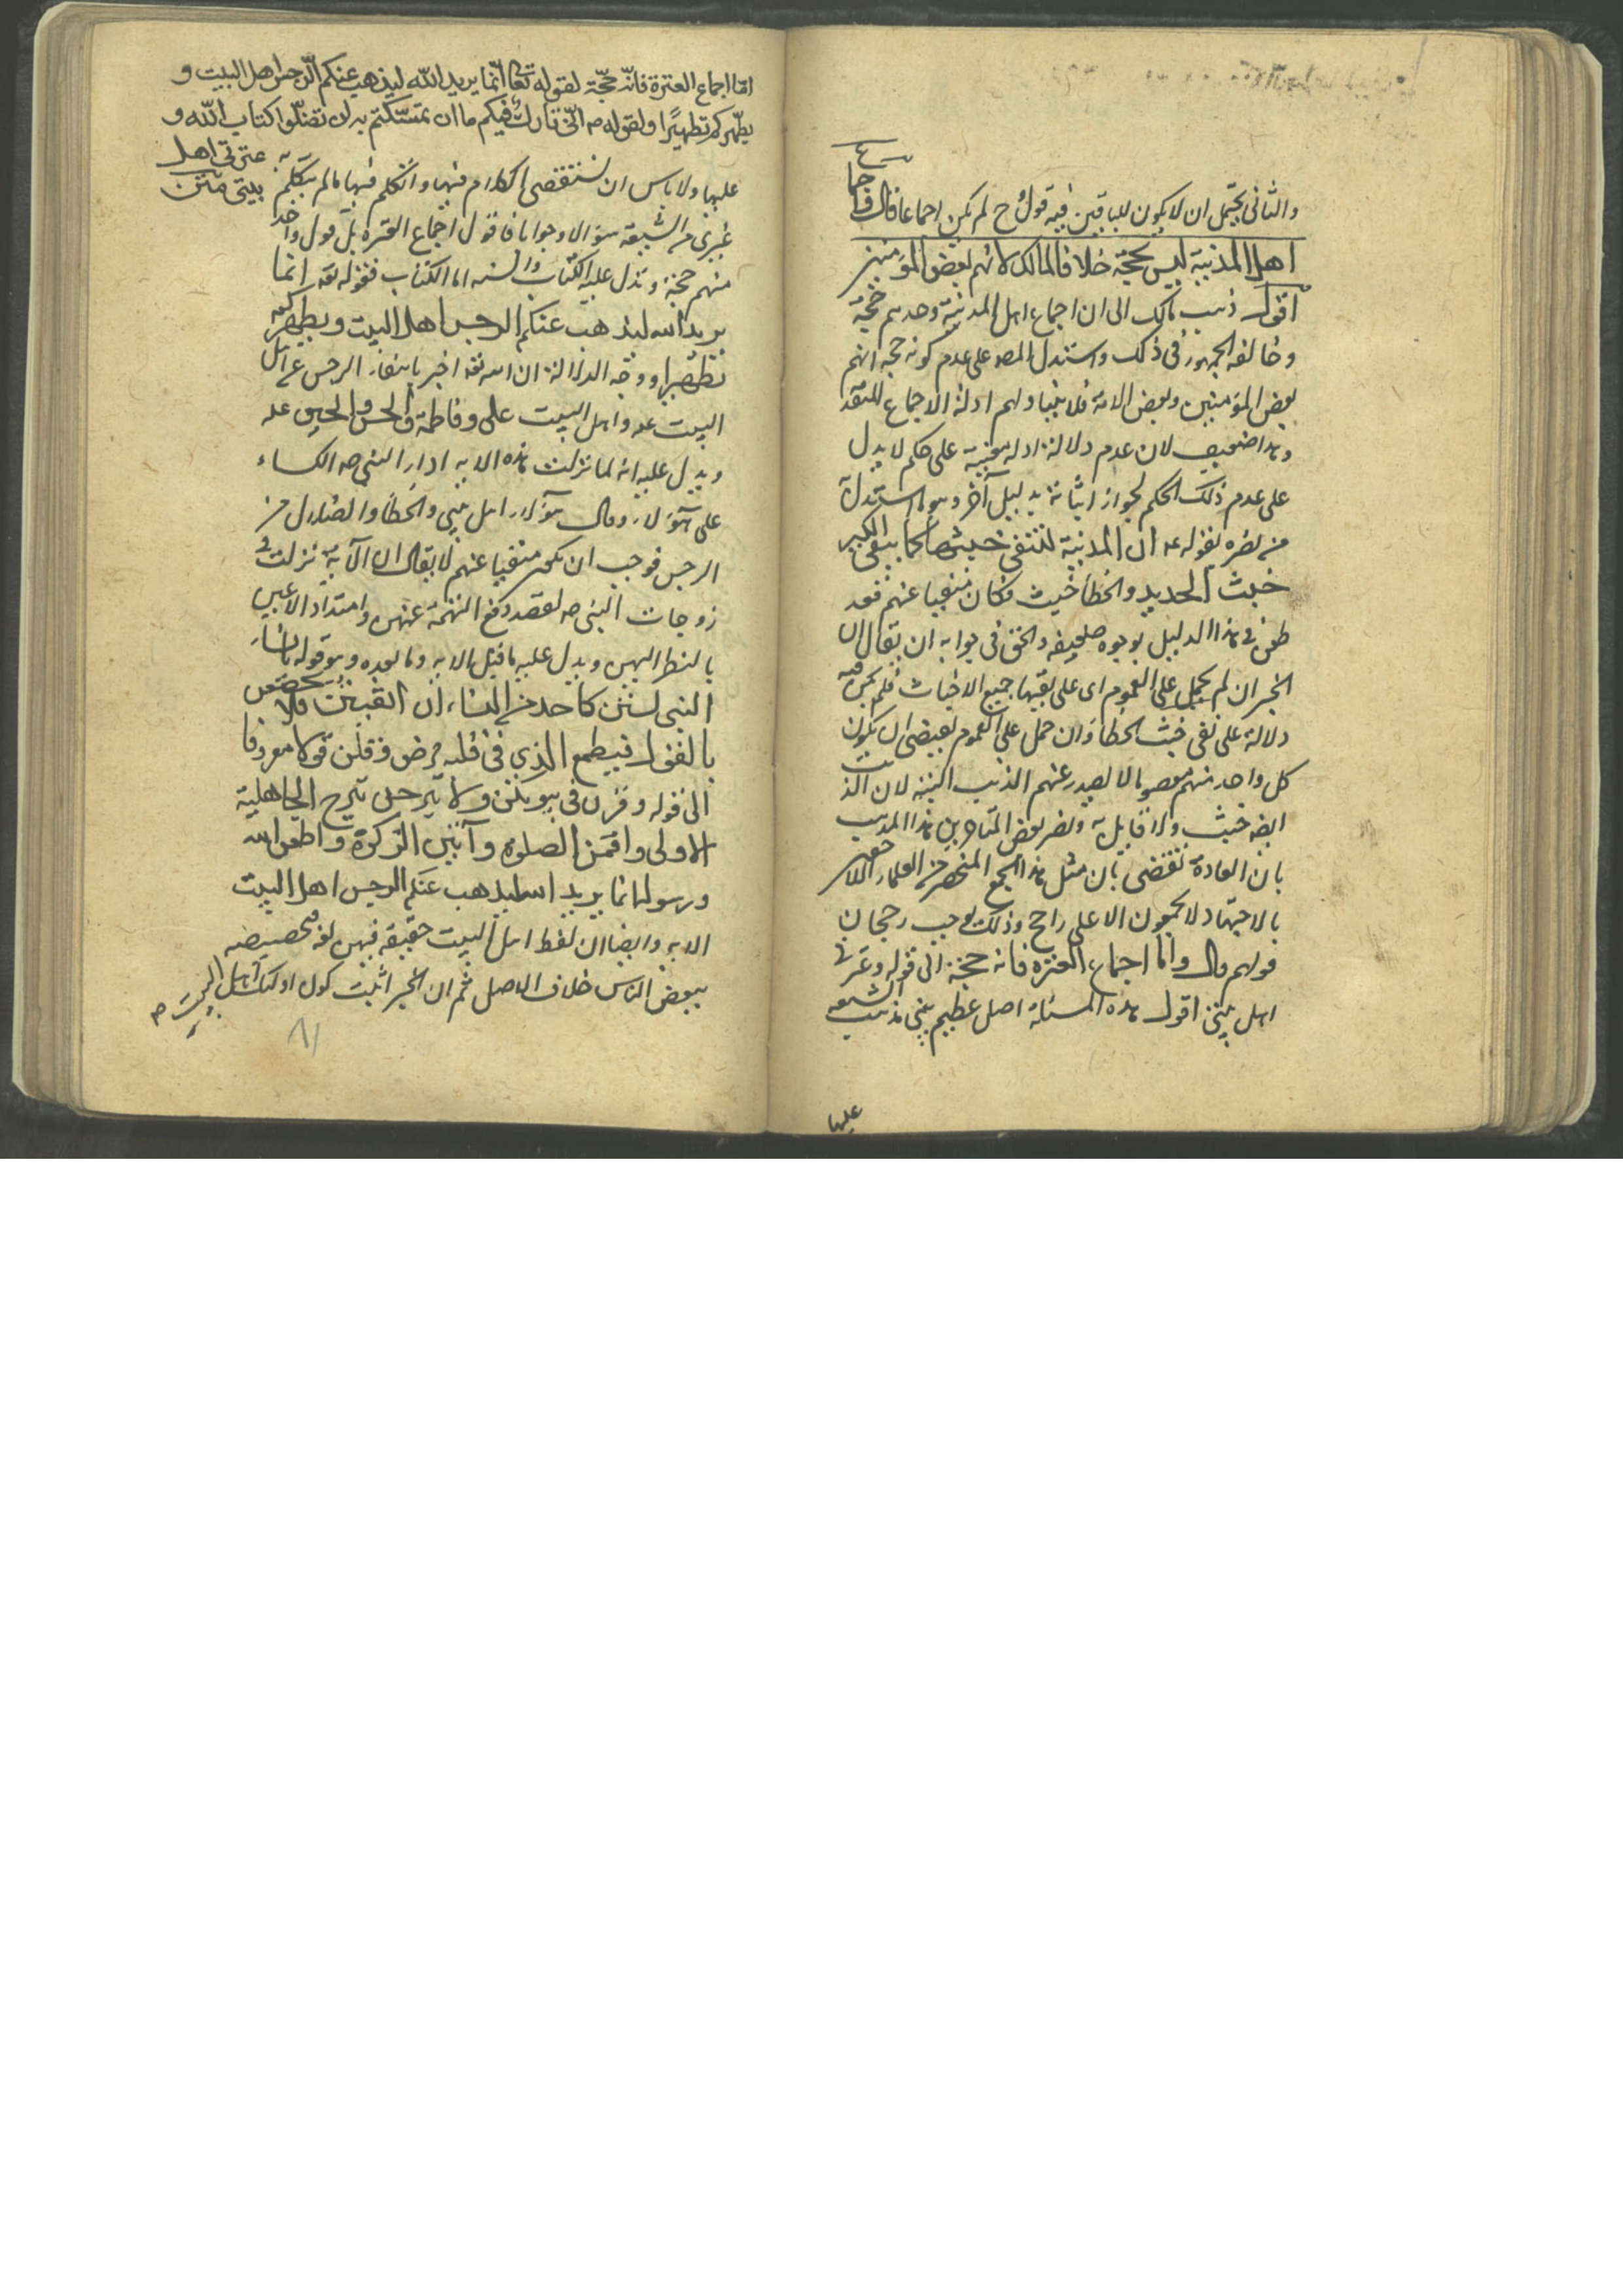 والثانى يحتمل ان لا يكون للباقين فيه قول ح لم يكن اجماعا قال واجماع
اهل المدينة ليس بحجة خلافا لمالك لانهم بعض المؤمنين
اقول ذهب مالك الى ان اجماع اهل المدينة وحدهم حجة
وخالفه الجمهور فى ذلك واستدل المصه على عدم كونه حجة انهم
بعض المؤمنين وبعض الامة فلا يتناولهم ادلة الاجماع المتقد
وهذا ضعيف لان عدم دلالة ادلة معينة على حكم لا يدل
على عدم ذلك الحكم لجواز اثباته بدليل آخر وهو استدل
من نصره بقوله عه ان المدينة لتنفى خبثها كما ينفى الكير
خبث الحديد والخطأ خبث فكان منفيا عنهم فقد
طعن فى هذا الدليل بوجوه ضعيفه والحق فى جوابه ان يقال ان
الخبر ان لم يحمل على العموم اى على نفيها جميع الاخباث فلم يكن فيه
دلالة على نفى خبث الخطأ وان حمل على العموم لقيضى ان يكون
كل واحد منهم معصوما لا يصدر عنهم الذنب البتة لان الذنب
ايضه خبث ولا قايل به ونصر بعض المتاخرين هذا المذهب
بان العادة تقضى بان مثل هذا الجمع المنحصر من العلماء اللاحقين
بالاجتهاد لا يجمعون الا على راجح وذلك يوجب رجحان
قولهم قال واما اجماع العترة فانه حجة الى قوله وعترتى
اهل بيتى اقول هذه المسئلة اصل عظيم يبنى مذهب الشيعه
عليها
اما اجماع العترة فانه حجّة لقوله تعا انّما يريد الله ليذهب عنكم الرّجس اهل البيت و
يطهّركم تطهيرًا ولقوله صه انّى تارك فيكم ما ان تمسّكتم به لن تضلّوا كتاب الله و
عترتى اهل
بيتى متن
عليها ولا باس ان نستقصى الكلام فيها واتكلم فيها ما لم يتكلم به
غيرى من الشيعة سؤالا وجوابا فاقول اجماع العترة بل قول واحد
منهم حجة وتدل عليه الكتاب والسنه اما الكتاب فقوله تعه انما
يريد الله ليذهب عنكم الرجس اهل البيت ويطهركم
تطهيرا ووجه الدلالة ان الله تعه اخبر بانتفاء الرجس عن اهل
البيت عه واهل البيت على وفاطمة والحسن والحسين عه
ويدل عليه انه لما نزلت هذه الايه ادار النبى صه الكساء
على هؤلاء وقال هؤلاء اهل بيتى والخطأ والضلال من
الرجس فوجب ان يكون منفيا عنهم لا يقال ان الآية نزلت فى
زوجات النبى صه لقصد دفع التهمة عنهن وامتداد الاعين
بالنظر اليهن ويدل عليه ما قبل الايه وما بعده وهو قوله يا نساء
النبى لستن كاحد من النساء ان اتقيتن فلا تخضعن
بالقول فيطمع الذى فى قلبه مرض وقلن قولا معروفا
الى قوله وقرن فى بيوتكن ولا تبرجن تبرج الجاهلية
الاولى واقمن الصلوة وآتين الزكوة واطعن الله
ورسوله انما يريد الله ليذهب عنكم الرجس اهل البيت
الايه وايضا ان لفظ اهل البيت حقيقة فيهن لغه فتخصيصه
ببعض الناس خلاف الاصل ثم ان الخبر اثبت كون اولئك اهل البيت
٨١